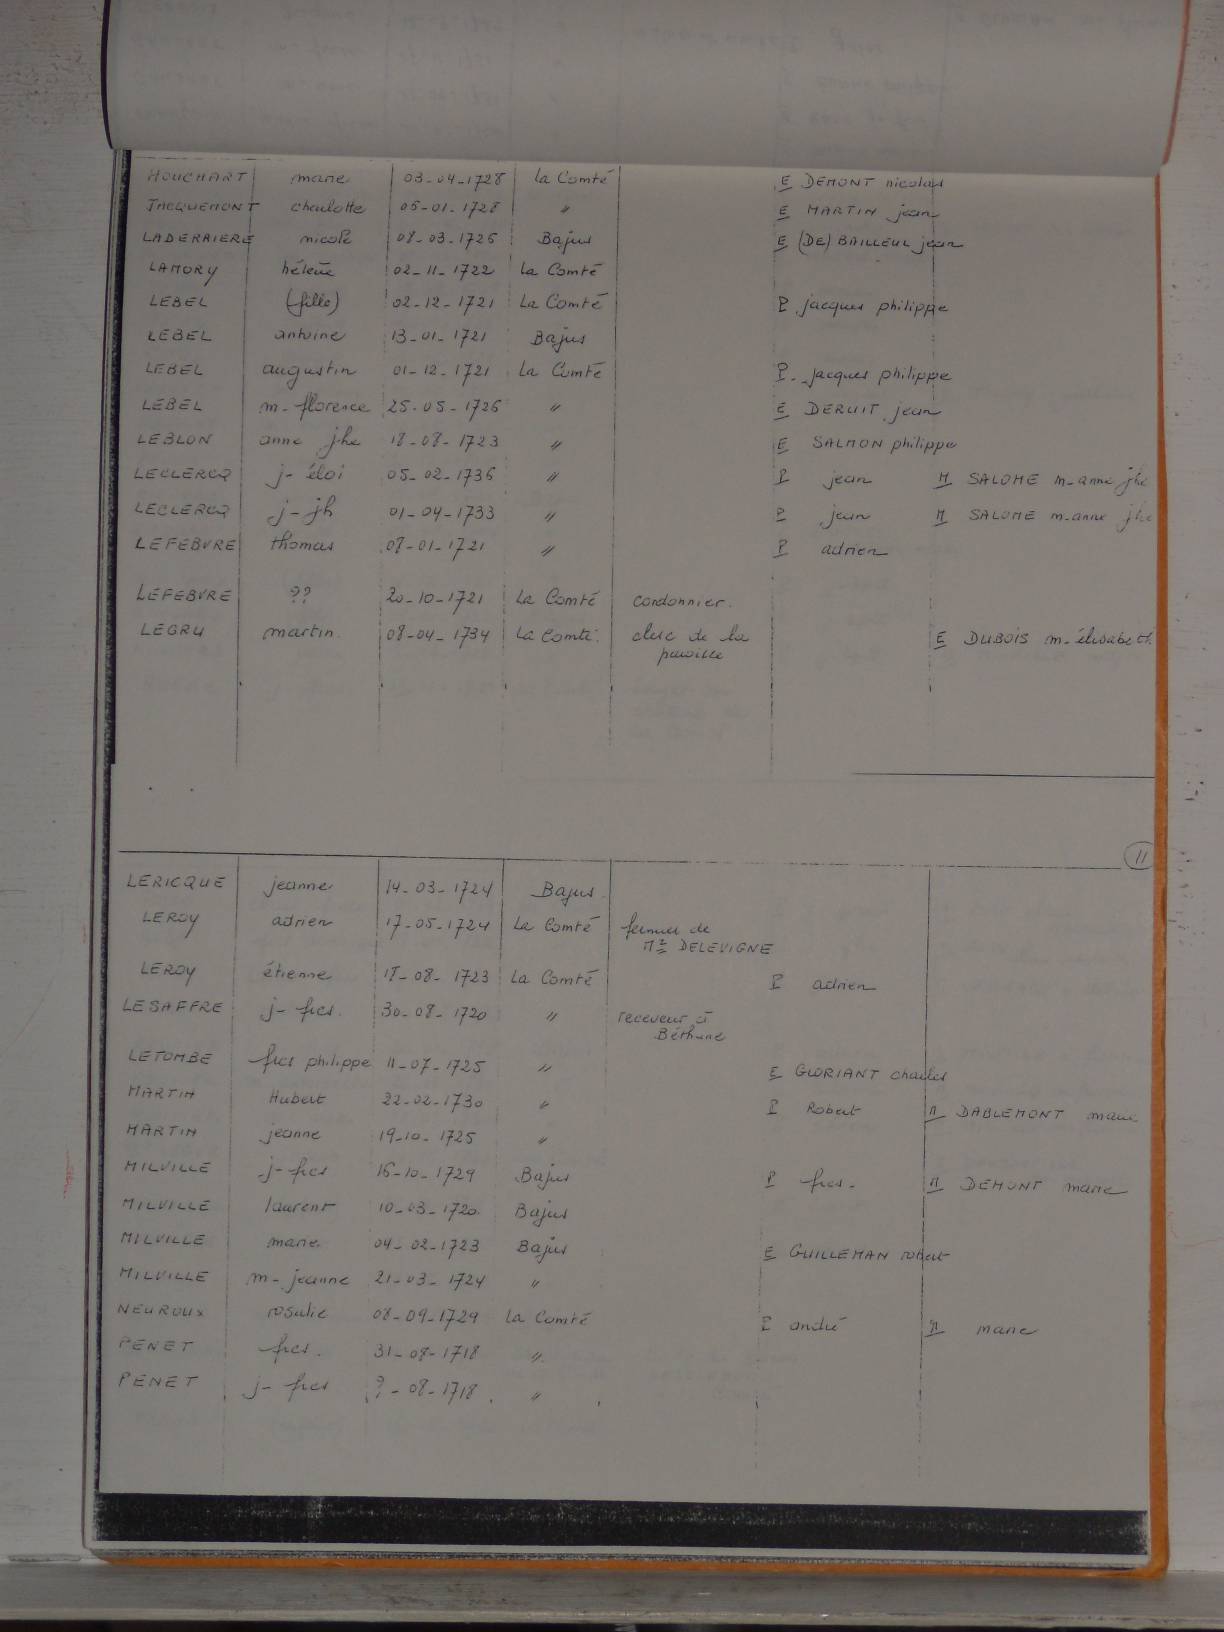 HOUCHART marie 03-04-1728 La Comté E DEMONT nicolas
JACQUEMONT charlotte 05-01-1728 " E MARTIN jean
LADERRIERE nicole 08-03-1725 Bajus E (DE) BAILLEUL jean
LAMORY hélène 02-11-1722 La Comté
LEBEL (fille) 02-12-1721 La Comté P jacques philippe
LEBEL antoine 13-01-1721 Bajus
LEBEL augustin 01-12-1721 La Comté P. jacques philippe
LEBEL m-florence 25-05-1726 " E DERUIT jean
LEBLON anne jhe 18-08-1723 " E SALMON philippe
LECLERCQ j-éloi 05-02-1736 " P jean M SALOME m-anne jhe
LECLERCQ j-jh 01-04-1733 " P jean M SALOME m-anne jhe
LEFEBVRE thomas 08-01-1721 " P adrien
LEFEBVRE ?? 20-10-1721 La Comté cordonnier.
LEGRU martin 08-04-1734 La Comté clerc de la E DUBOIS m-élisabeth
paroisse
11
LERICQUE jeanne 14-03-1724 Bajus
LEROY adrien 17-05-1724 La Comté fermier de
Mr DELEVIGNE
LEROY étienne 18-08-1723 La Comté P adrien
LESAFFRE j-fcs. 30-08-1720 " receveur à
Béthune
LETOMBE fcs philippe 11-07-1725 " E GLORIANT charles
MARTIN Hubert 22-02-1730 " P Robert M DABLEMONT marie
MARTIN jeanne 19-10-1725 "
MILVILLE j-fcs 16-10-1729 Bajus P fcs. M DEMONT marie
MILVILLE laurent 10-03-1720 Bajus
MILVILLE marie 04-02-1723 Bajus E GUILLEMAN robert
MILVILLE m-jeanne 21-03-1724 "
NEUROUX rosalie 08-09-1729 La Comté P andré M marie
PENET fcs. 31-08-1718 "
PENET j-fcs ?-08-1718 "